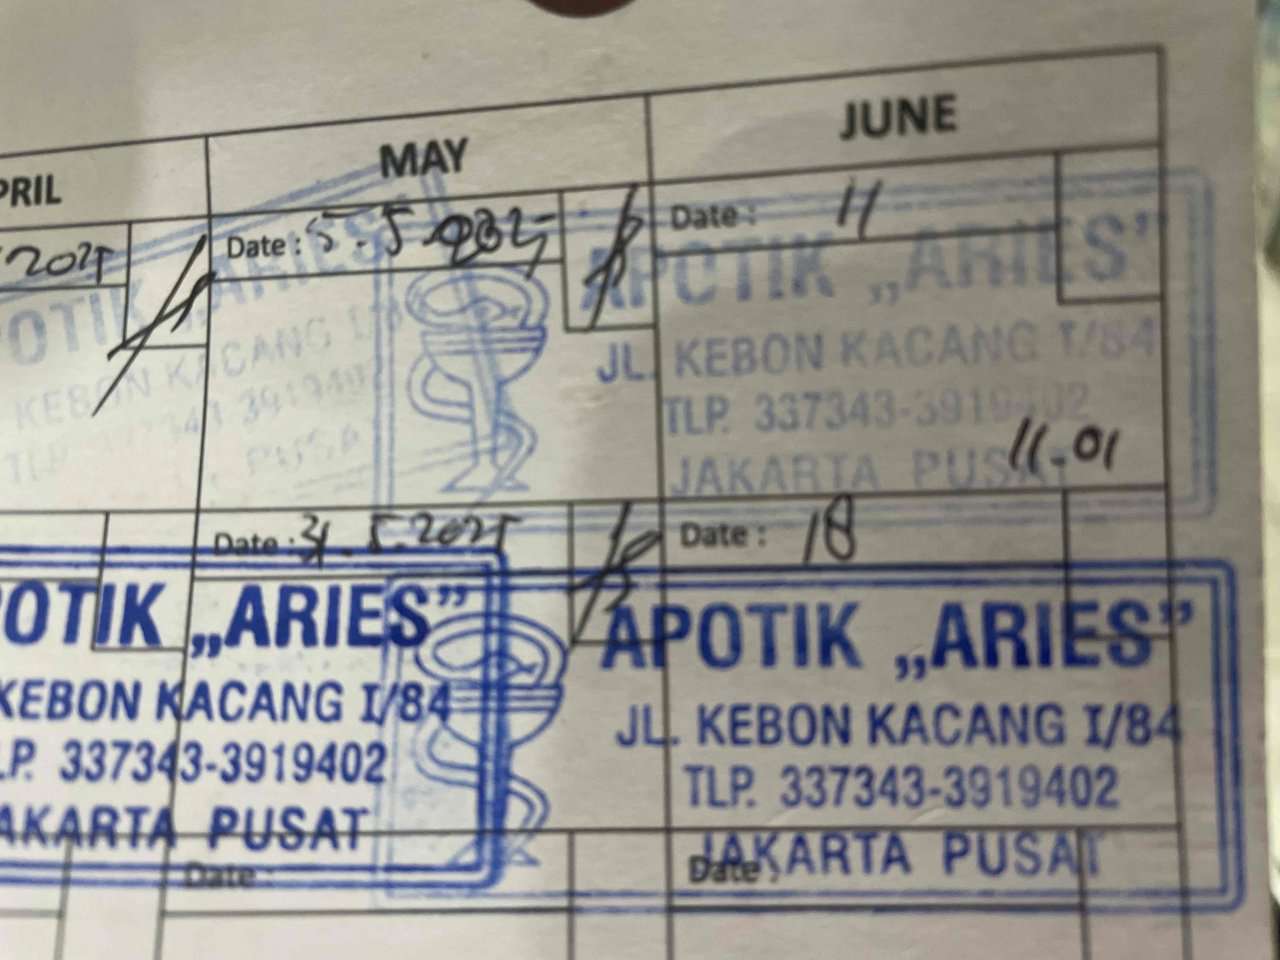 PRIL
MAY
JUNE
2025
Date : 5.5.2025
Date : 11
OTIK „ARIES”
KEBON KACANG I/
APOTIK „ARIES”
JL. KEBON KACANG I/84
TLP. 337343-3919402
JAKARTA PUSAT
11.01
Date : 31.5.2025
Date : 18
POTIK „ARIES”
KEBON KACANG I/84
LP. 337343-3919402
AKARTA PUSAT
APOTIK „ARIES”
JL. KEBON KACANG I/84
TLP. 337343-3919402
JAKARTA PUSAT
Date :
Date :